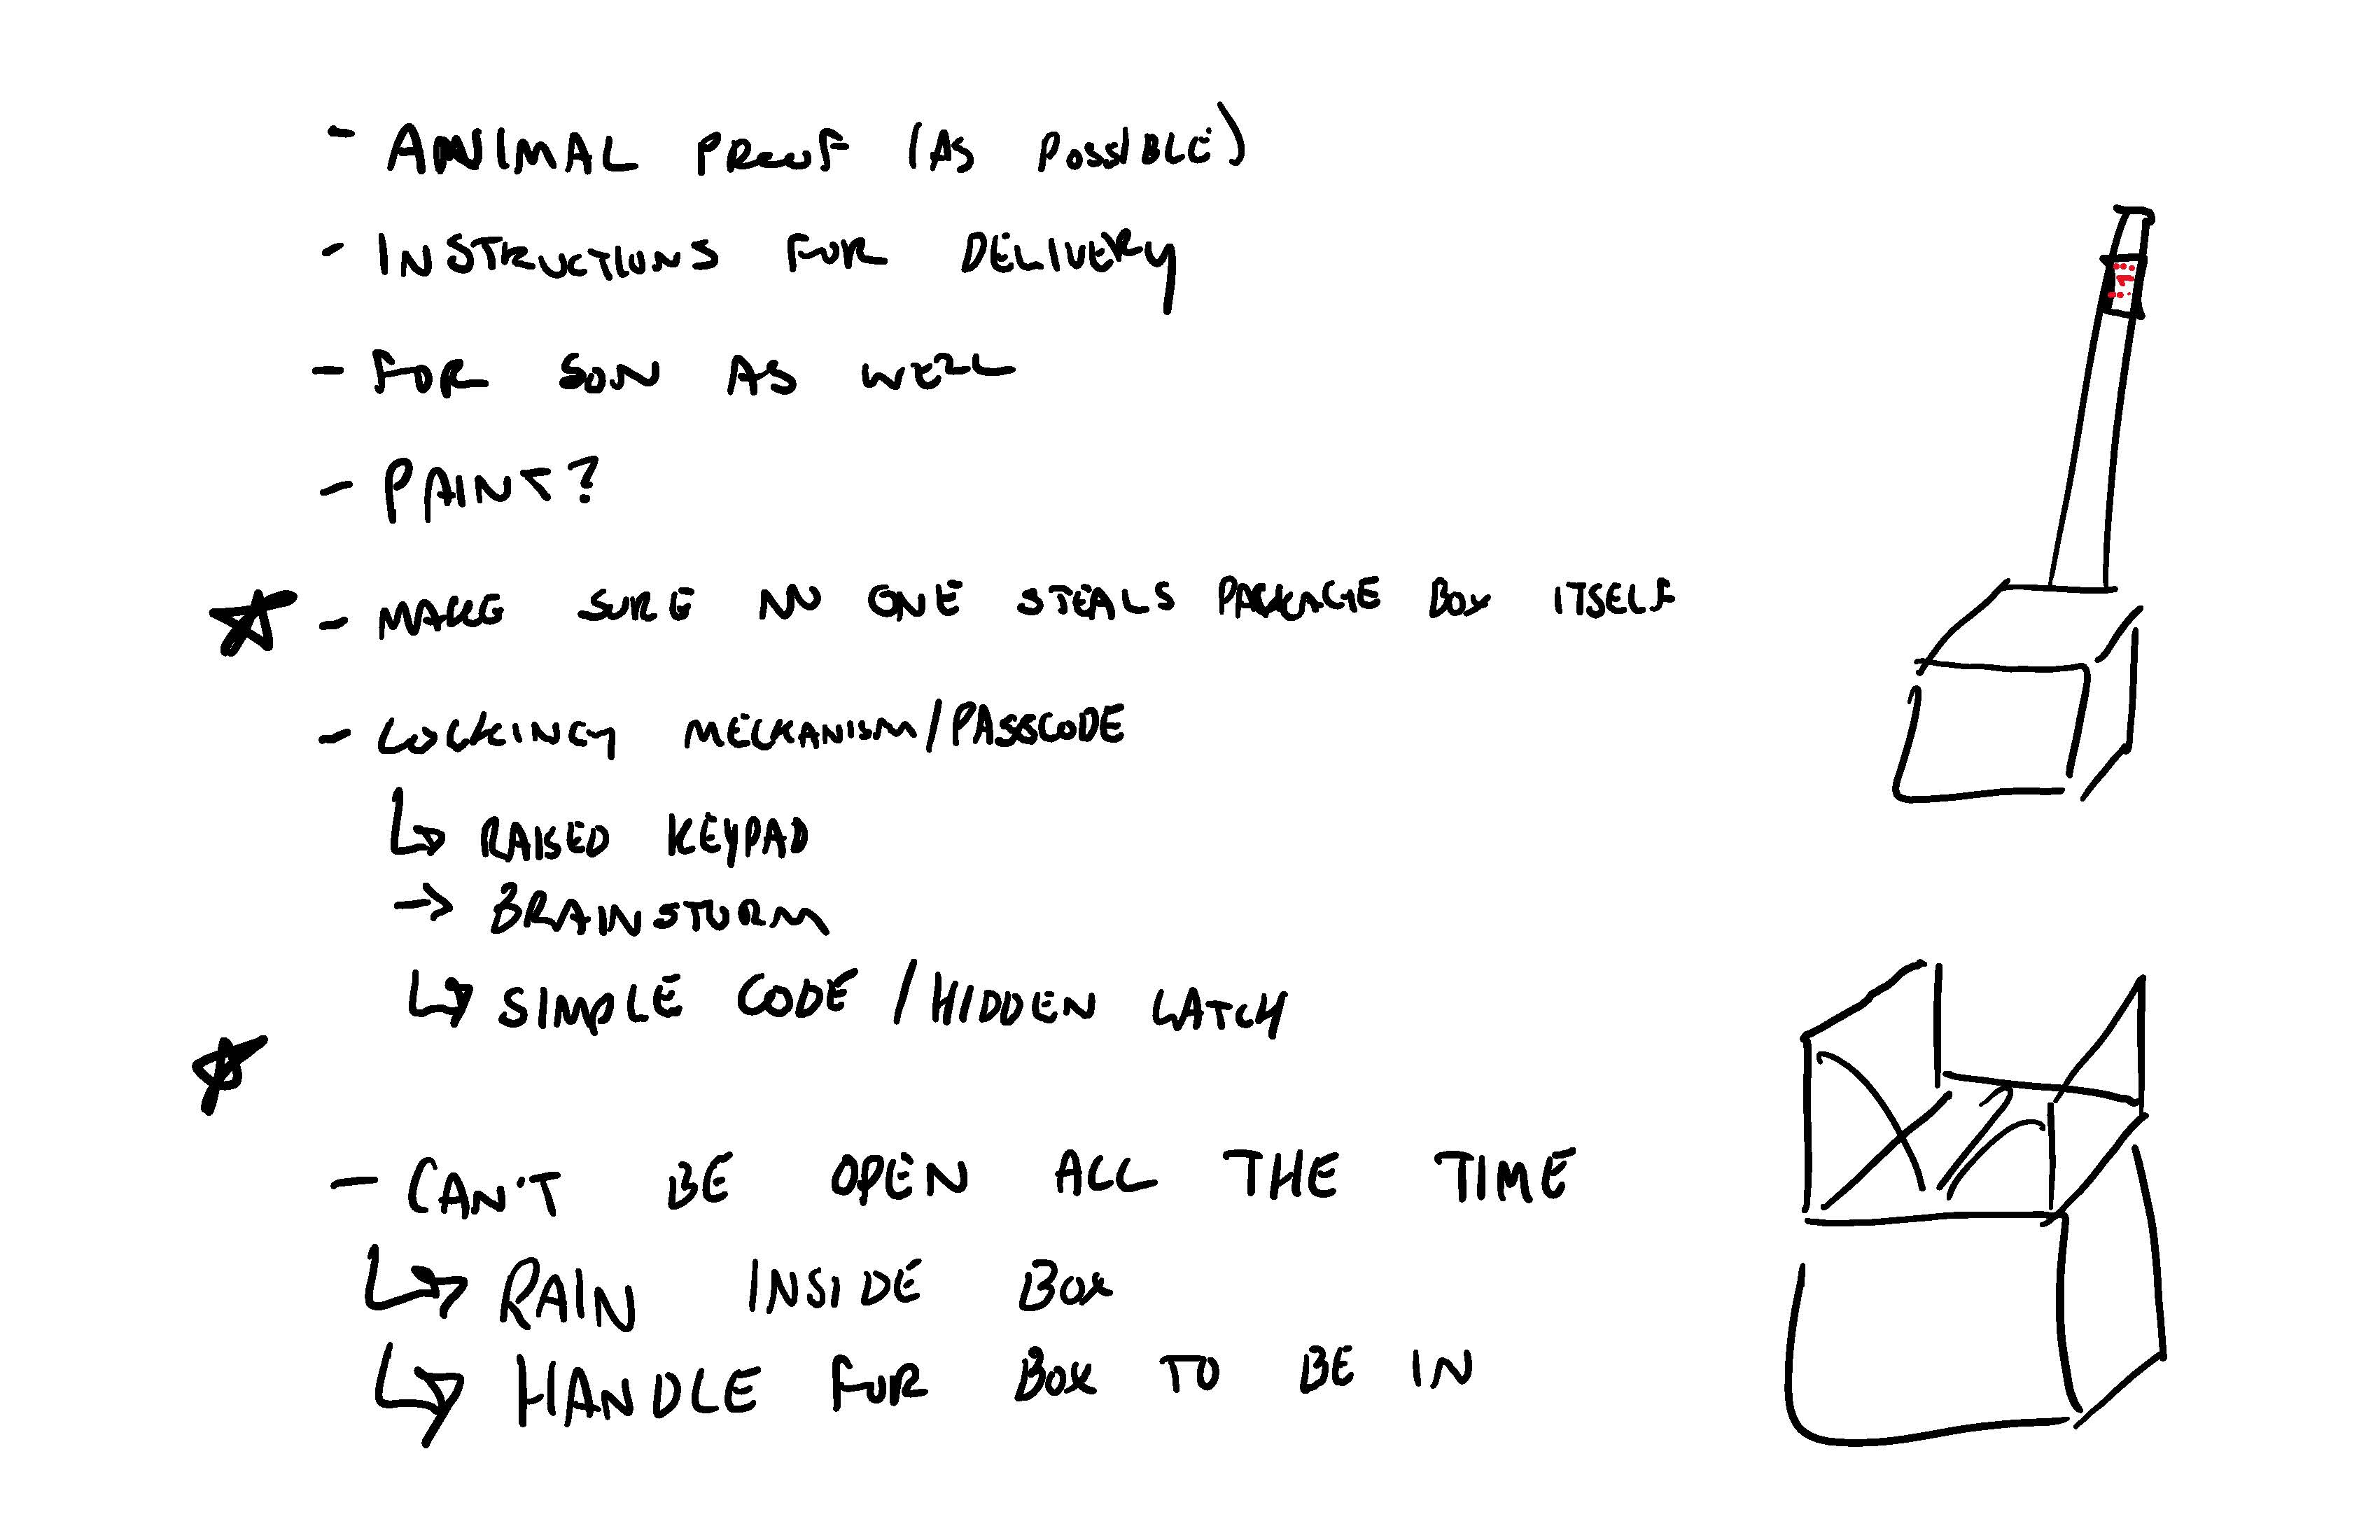 - ANIMAL PROOF (AS POSSIBLE)
- INSTRUCTIONS FOR DELIVERY
- FOR SON AS WELL
- PAINT?
- MAKE SURE NO ONE STEALS PACKAGE BOX ITSELF
- LOCKING MECHANISM/PASSCODE
RAISED KEYPAD
→ BRAINSTORM
SIMPLE CODE / HIDDEN LATCH
- CAN'T BE OPEN ALL THE TIME
RAIN INSIDE BOX
HANDLE FOR BOX TO BE IN